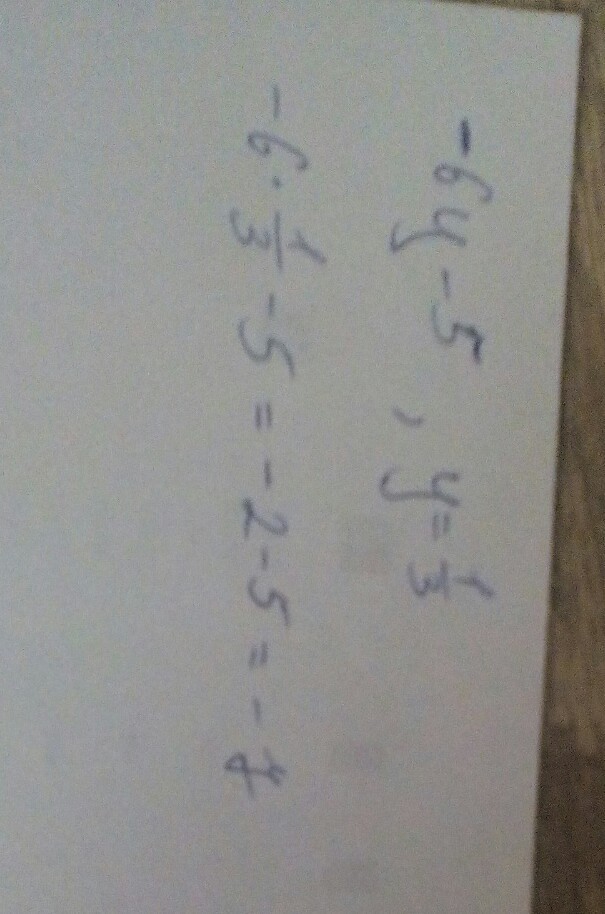 -6y-5, y=1/3
-6·1/3-5=-2-5=-7